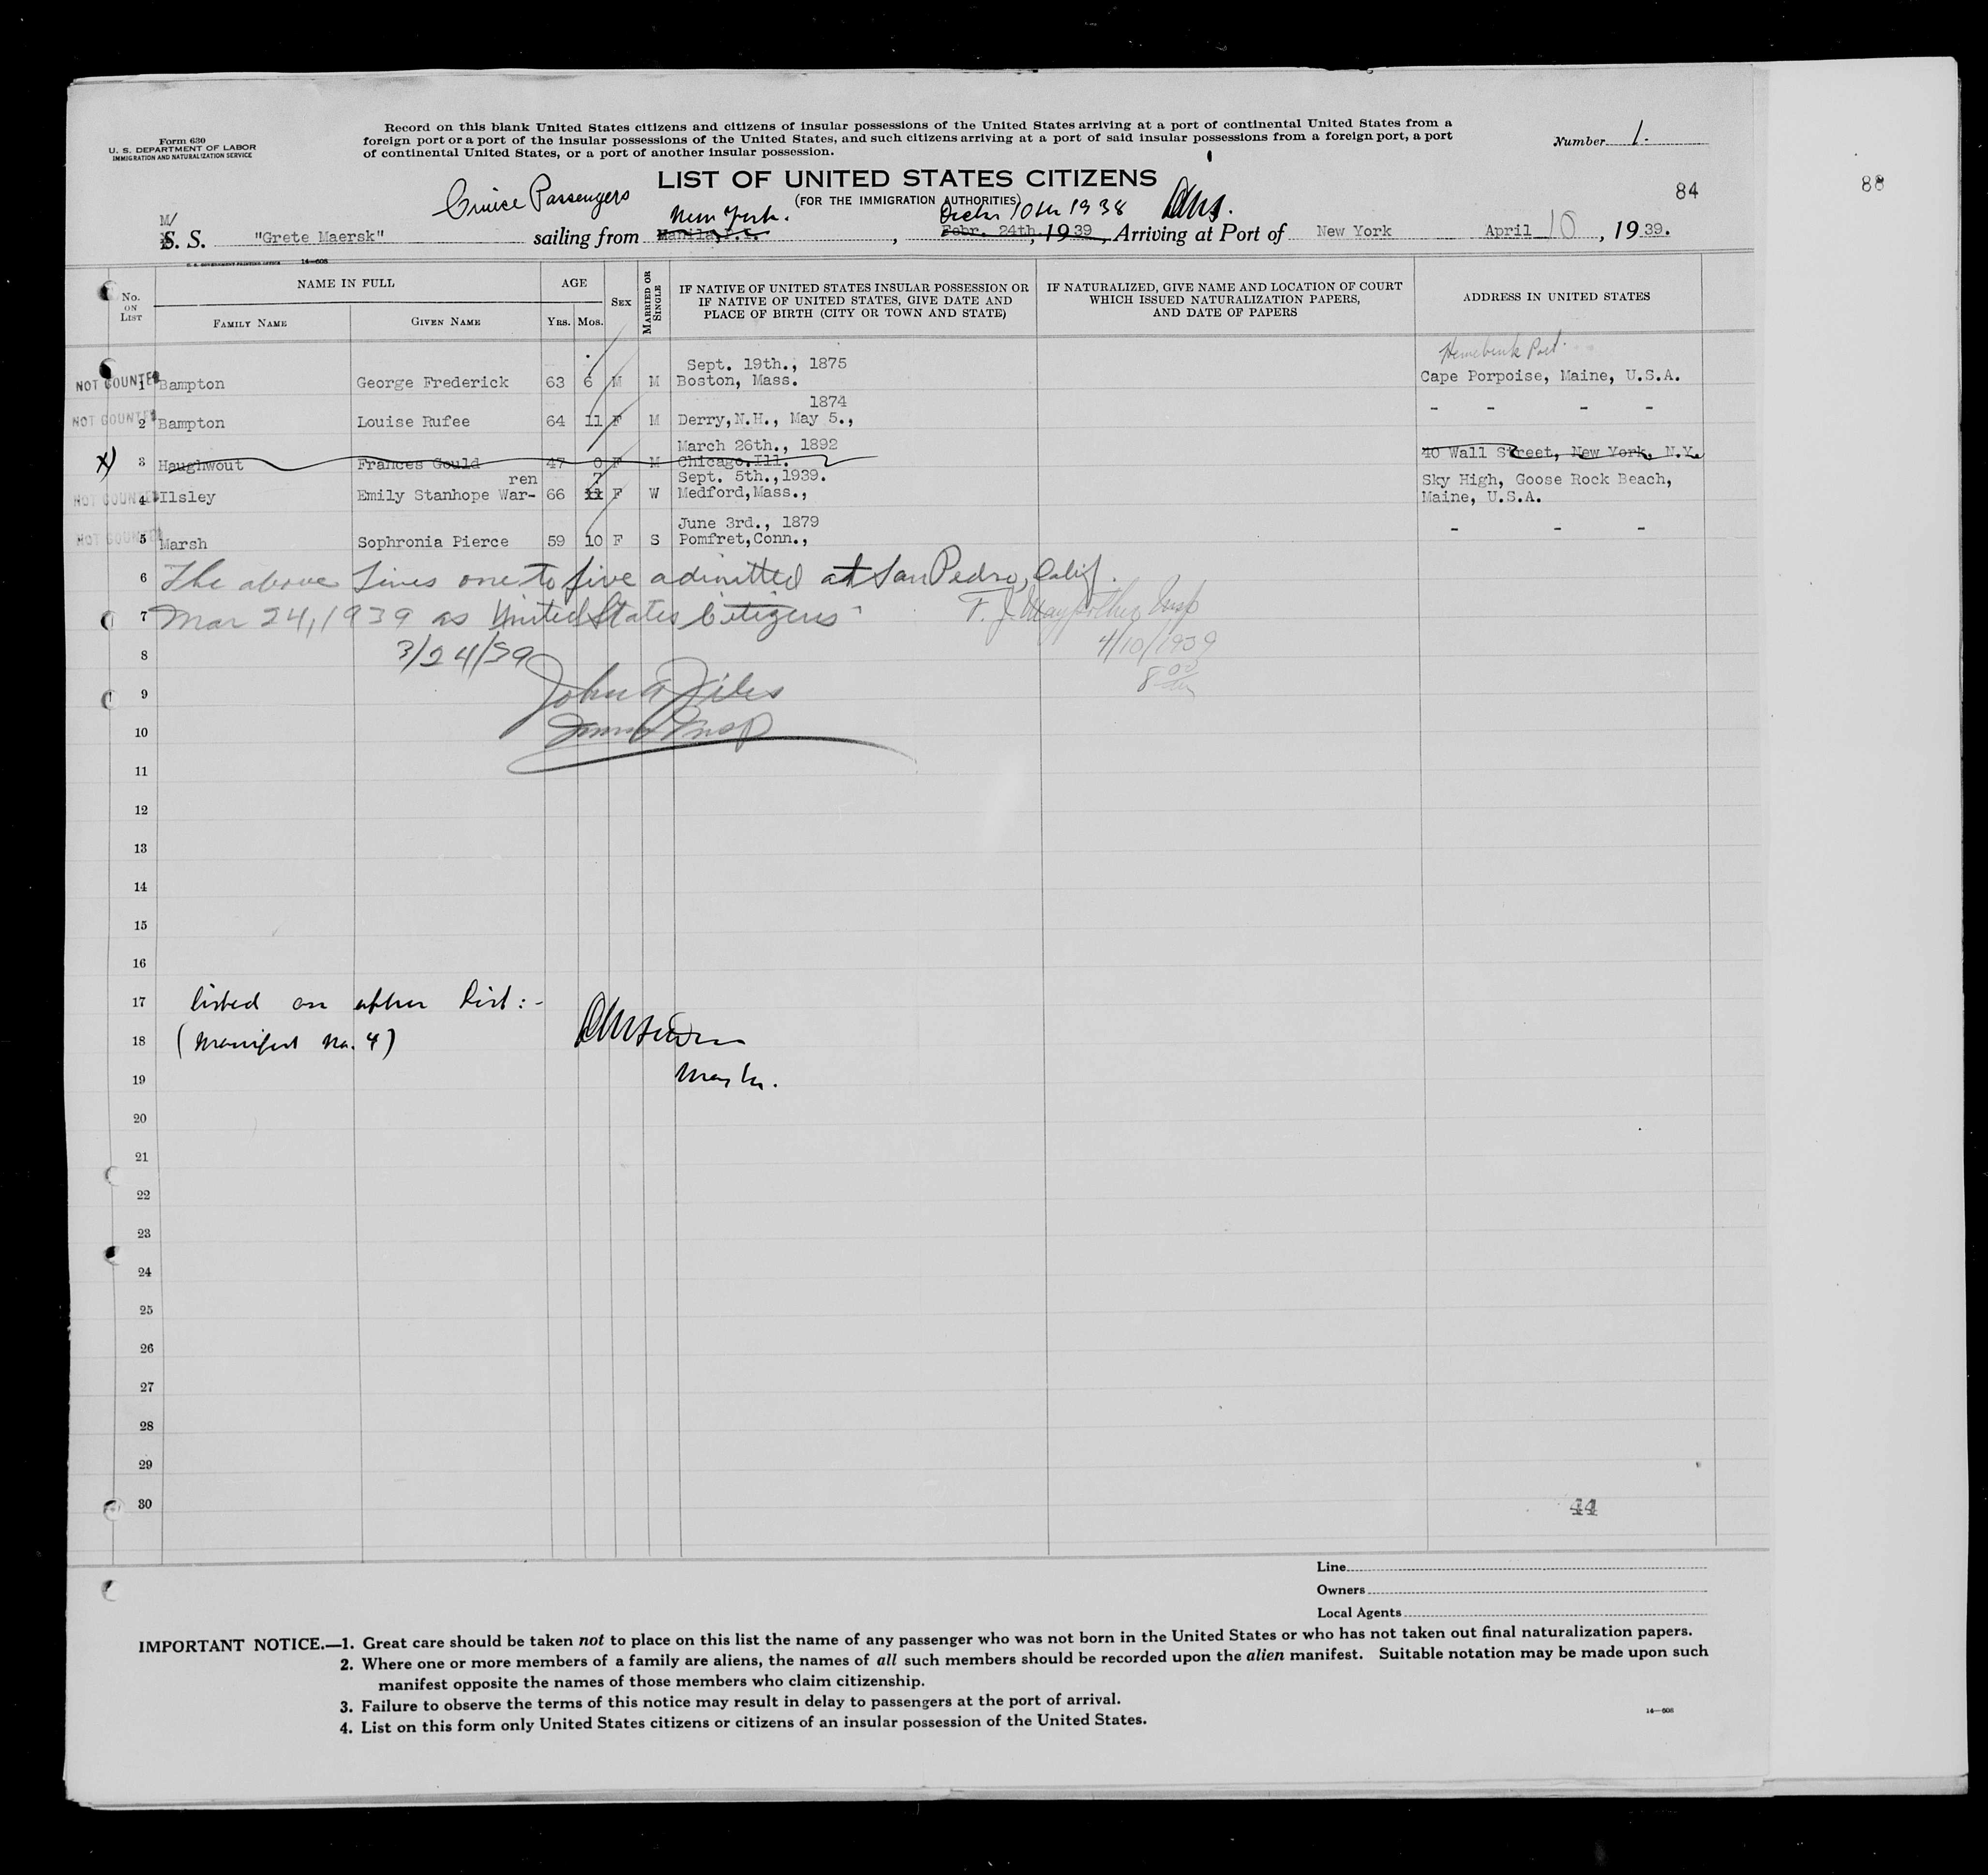 Form 630
U. S. DEPARTMENT OF LABOR
IMMIGRATION AND NATURALIZATION SERVICE
Record on this blank United States citizens and citizens of insular possessions of the United States arriving at a port of continental United States from a
foreign port or a port of the insular possessions of the United States, and such citizens arriving at a port of said insular possessions from a foreign port, a port
of continental United States, or a port of another insular possession.
Number 1.
84
88
LIST OF UNITED STATES CITIZENS
(FOR THE IMMIGRATION AUTHORITIES)
Cruise Passengers
New York. 10th 1938
M/
S. S. "Grete Maersk" sailing from Manila, Febr. 24th, 1939, Arriving at Port of New York April 10, 1939.
U. S. GOVERNMENT PRINTING OFFICE 14—608
No. ON LIST
NAME IN FULL
FAMILY NAME
GIVEN NAME
AGE
YRS.
MOS.
SEX
MARRIED OR SINGLE
IF NATIVE OF UNITED STATES INSULAR POSSESSION OR
IF NATIVE OF UNITED STATES, GIVE DATE AND
PLACE OF BIRTH (CITY OR TOWN AND STATE)
IF NATURALIZED, GIVE NAME AND LOCATION OF COURT
WHICH ISSUED NATURALIZATION PAPERS,
AND DATE OF PAPERS
ADDRESS IN UNITED STATES
Sept. 19th., 1875
NOT COUNTED 1 Bampton George Frederick 63 6 M M Boston, Mass. Cape Porpoise, Maine, U.S.A.
1874
NOT COUNTED 2 Bampton Louise Rufee 64 11 F M Derry,N.H., May 5., - - - -
March 26th., 1892
X) 3 Haughwout Frances Gould 47 0 F M Chicago.Ill. 40 Wall Street, New York, N.Y.
ren 7 Sept. 5th.,1939. Sky High, Goose Rock Beach,
NOT COUNTED 4 Ilsley Emily Stanhope War- 66 11 F W Medford,Mass., Maine, U.S.A.
June 3rd., 1879
NOT COUNTED 5 Marsh Sophronia Pierce 59 10 F S Pomfret,Conn., - - -
6 The above lines one to five admitted at San Pedro, Calif.
7 Mar 24, 1939 as United States Citizens
F. J. Insp
4/10/1939
8 00
8 3/24/39
9 John A Files
10 Immg Insp
11
12
13
14
15
16
17 listed on other list:-
18 (Manifest No. 4)
19 Master.
20
21
22
23
24
25
26
27
28
29
30
44
Line
Owners
Local Agents
IMPORTANT NOTICE.—1. Great care should be taken not to place on this list the name of any passenger who was not born in the United States or who has not taken out final naturalization papers.
2. Where one or more members of a family are aliens, the names of all such members should be recorded upon the alien manifest. Suitable notation may be made upon such
manifest opposite the names of those members who claim citizenship.
3. Failure to observe the terms of this notice may result in delay to passengers at the port of arrival.
4. List on this form only United States citizens or citizens of an insular possession of the United States.
14—608